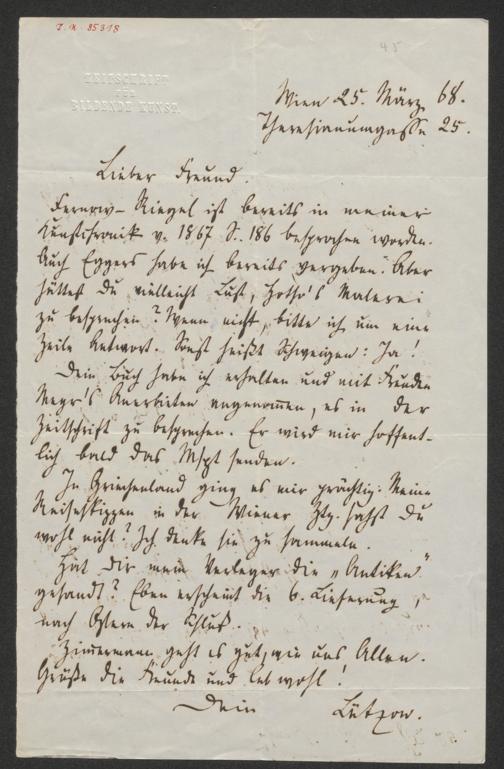 J. N. 85318
45
ZEITSCHRIFT
FÜR
BILDENDE KUNST.
Wien 25. März 68.
Theresianumgasse 25.
Lieber Freund.
Fernow-Riegel ist bereits in meiner
Kunstchronik v. 1867 S. 186 besprochen worden.
Auch Eggers habe ich bereits vergeben. Aber
hättest Du vielleicht Lust, Hotho's Malerei
zu besprechen? Wenn nicht, bitte ich um eine
Zeile Antwort. Sonst heißt Schweigen: Ja!
Dein Buch habe ich erhalten und mit Freuden
Anerbieten angenommen, es in der
Zeitschrift zu besprechen. Er wird mir hoffent-
lich bald das Mspt senden.
In Griechenland ging es mir prächtig. Meine
Reiseskizzen in der Wiener Ztg. sahst Du
wohl nicht? Ich denke sie zu sammeln.
Hat Dir mein Verleger die „Antiken"
gesandt? Eben erscheint die 6. Lieferung,
nach Ostern der Schluß.
Zimmermann geht es gut, wie uns Allen.
Grüße die Freunde und leb wohl!
Dein Lützow.